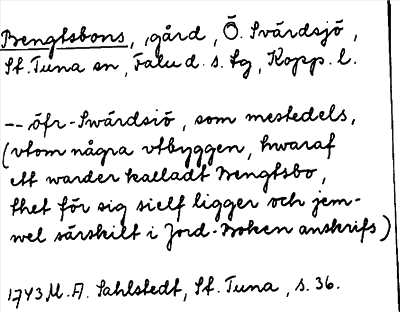 Bengtsbons, gård, Ö. Svärdsjö,
St. Tuna sn, Falu d. s. lg, Kopp. l.
-- öfr-Swärdsiö, som mestedels,
(vtom några vtbyggen, hwaraf
ett warder kalladt Bengtsbo,
thet för sig sielf ligger och jem-
wel särskilt i Jord-Boken anskrifs)
1743 M. A. Sahlstedt, St. Tuna, s. 36.